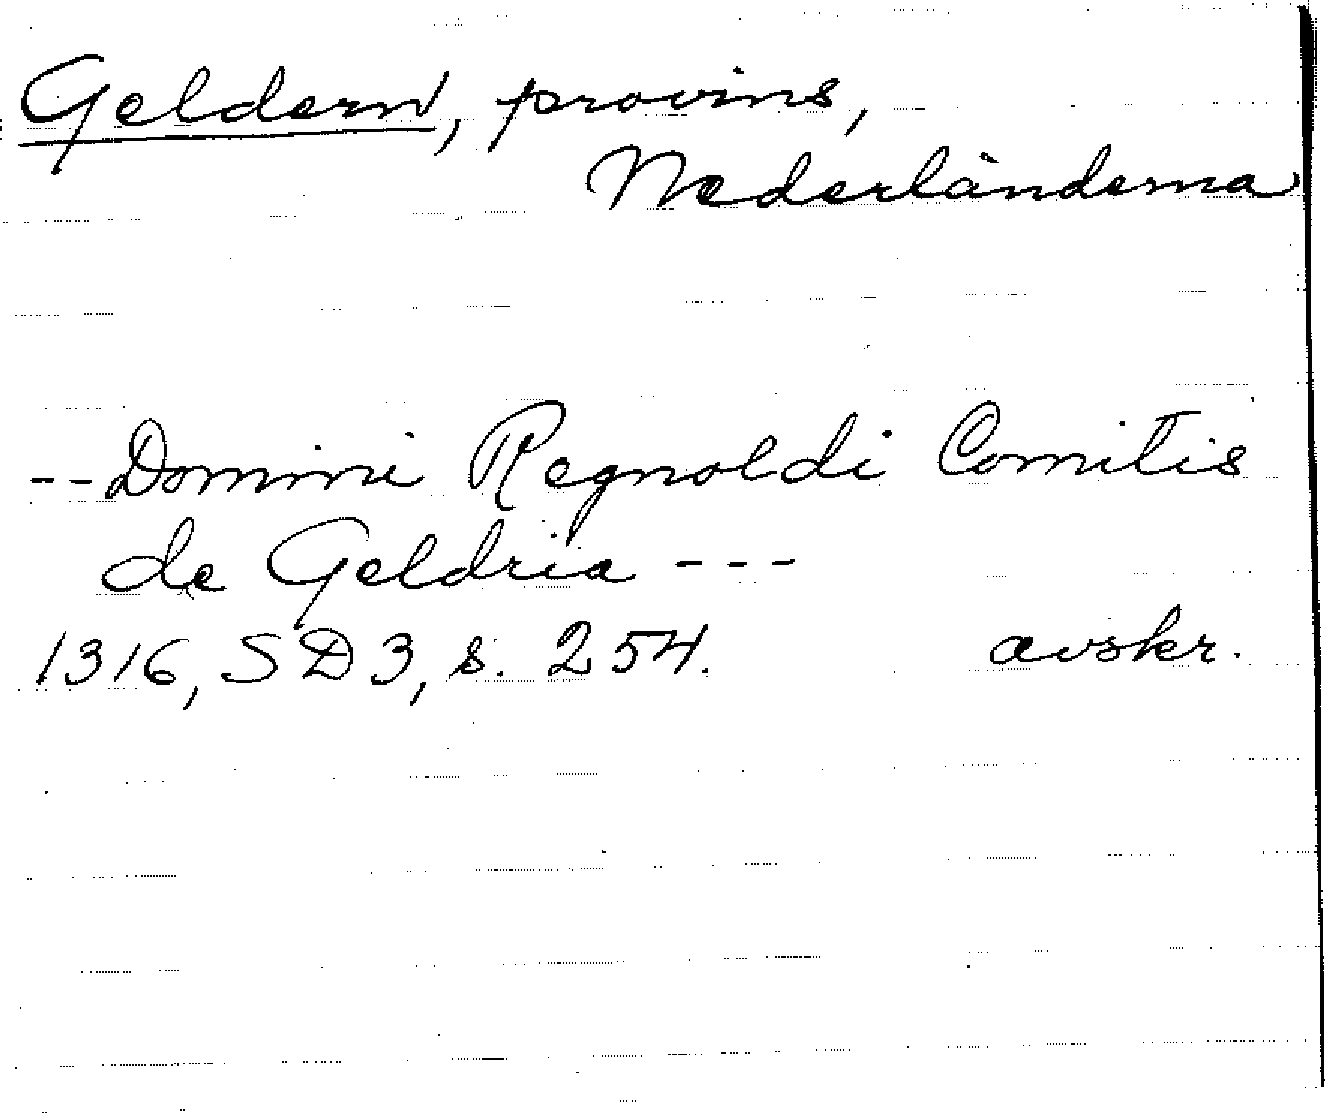 Geldern, provins,
Nederländerna
--Domini Regnoldi Comitis
de Geldria ---
1316, SD3, s. 254. avskr.